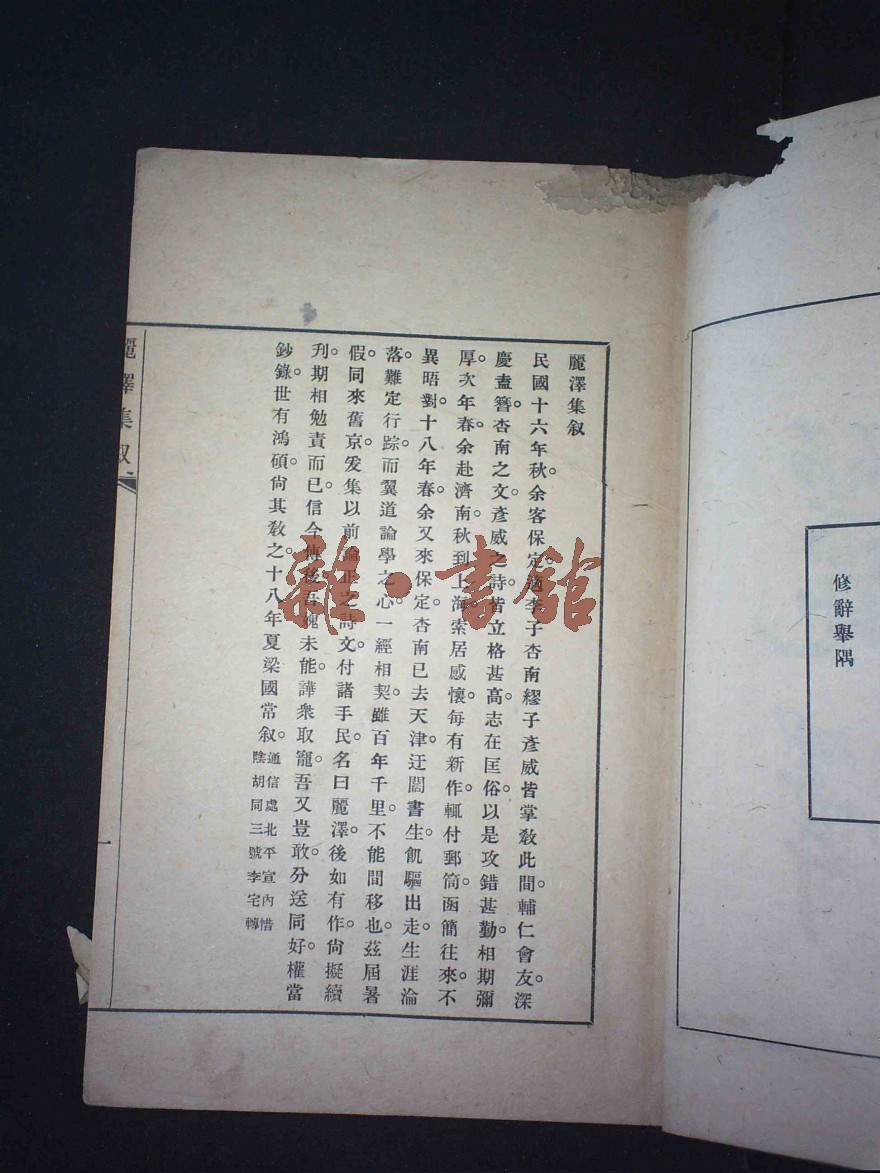 修辭舉隅
麗澤集叙
民國十六年秋。余客保定。適李子杏南繆子彥威皆掌教此間。輔仁會友。深
慶盍簪。杏南之文。彥威之詩。皆立格甚高。志在匡俗。以是攻錯甚勤。相期彌
厚。次年春。余赴濟南。秋到上海。索居感懷。每有新作。輒付郵筒。函簡往來。不
異晤對。十八年春。余又來保定。杏南已去天津。迂闊書生。飢驅出走。生涯淪
落。難定行踪。而翼道論學之心。一經相契。雖百年千里。不能間移也。茲屆暑
假。同來舊京。爰集以前論正之詩文。付諸手民。名曰麗澤。後如有作。尙擬續
刋。期相勉責而已。信今傳後。吾愧未能。譁衆取寵。吾又豈敢。分送同好。權當
鈔錄。世有鴻碩。尙其敎之。十八年夏梁國常叙。
通信處北平宣內惜
陰胡同三號李宅轉
麗澤集叙
一
雜·書館